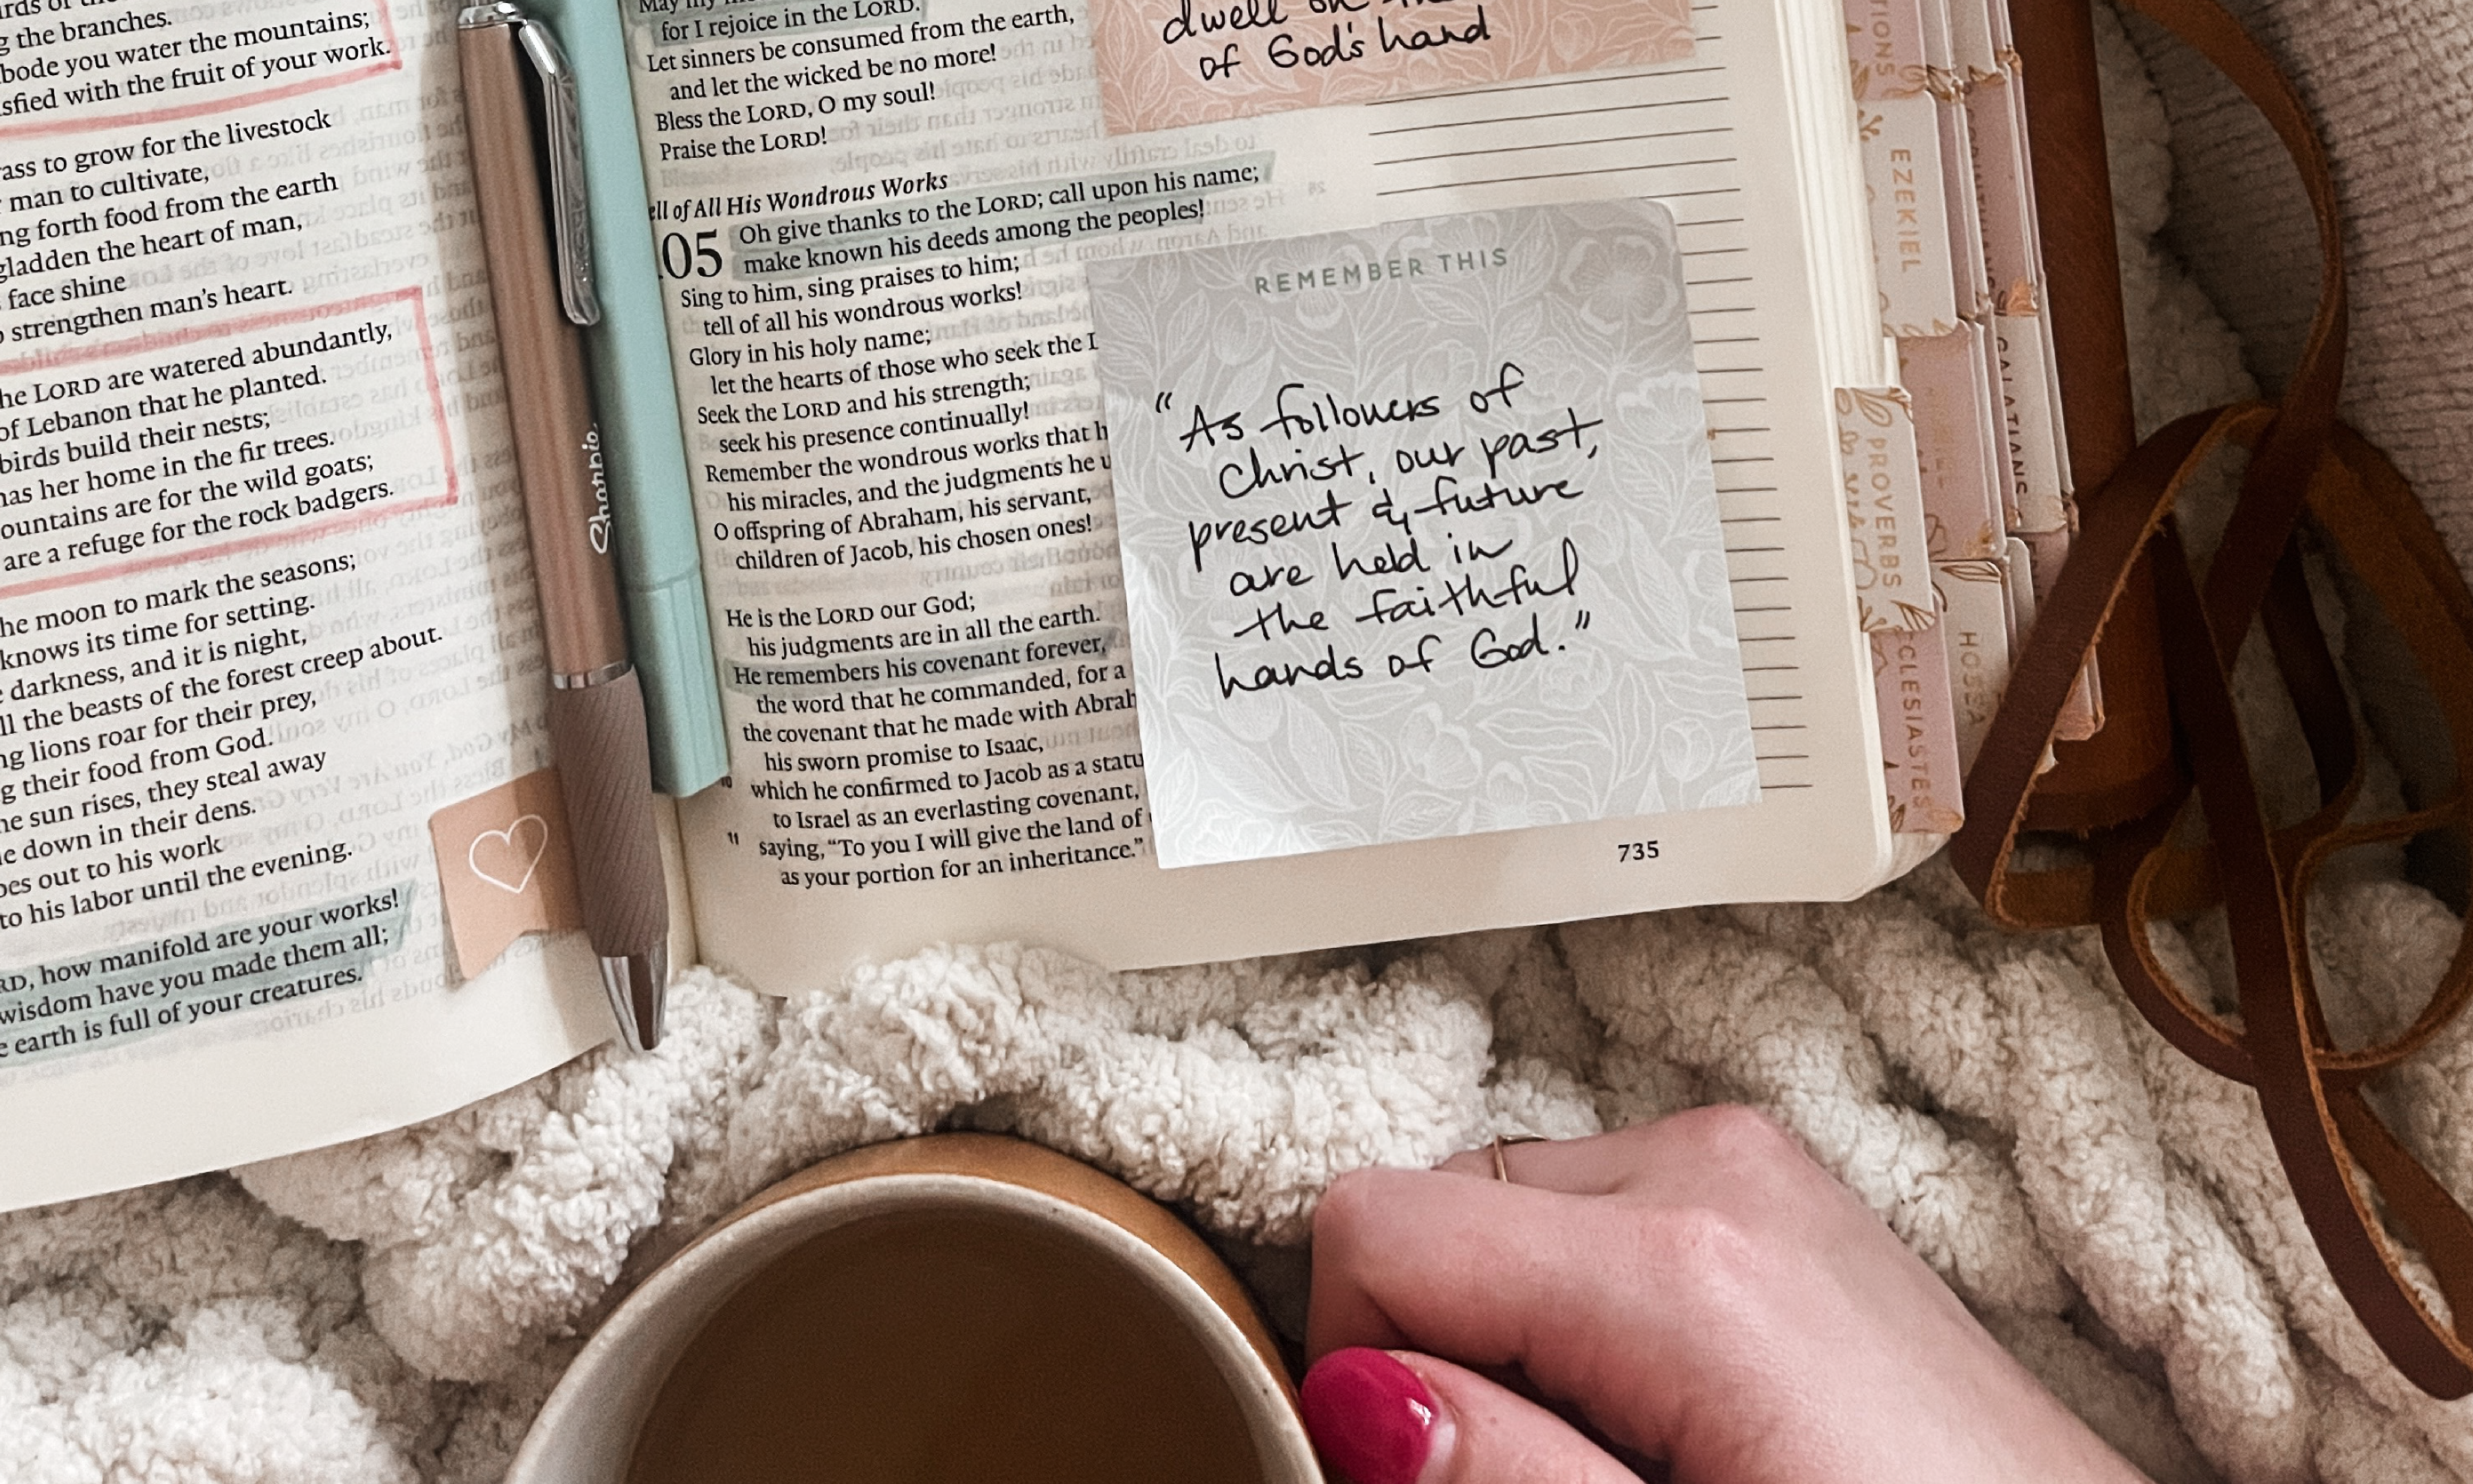 g the branches.
bode you water the mountains;
sfied with the fruit of your work.
ass to grow for the livestock
man to cultivate,
ng forth food from the earth
gladden the heart of man,
face shine
strengthen man's heart.
he LORD are watered abundantly,
of Lebanon that he planted.
birds build their nests;
has her home in the fir trees.
ountains are for the wild goats;
are a refuge for the rock badgers.
he moon to mark the seasons;
knows its time for setting.
darkness, and it is night,
ll the beasts of the forest creep about.
ng lions roar for their prey,
g their food from God.
he sun rises, they steal away
e down in their dens.
oes out to his work
to his labor until the evening.
RD, how manifold are your works!
wisdom have you made them all;
e earth is full of your creatures.
Sharpie
for I rejoice in the LORD.
Let sinners be consumed from the earth,
and let the wicked be no more!
Bless the LORD, O my soul!
Praise the LORD!
ell of All His Wondrous Works
05 Oh give thanks to the LORD; call upon his name;
make known his deeds among the peoples!
Sing to him, sing praises to him;
tell of all his wondrous works!
Glory in his holy name;
let the hearts of those who seek the
Seek the LORD and his strength;
seek his presence continually!
Remember the wondrous works that h
his miracles, and the judgments he u
O offspring of Abraham, his servant,
children of Jacob, his chosen ones!
He is the LORD our God;
his judgments are in all the earth.
He remembers his covenant forever,
the word that he commanded, for a
the covenant that he made with Abrah
his sworn promise to Isaac,
10 which he confirmed to Jacob as a statu
to Israel as an everlasting covenant,
11 saying, "To you I will give the land of
as your portion for an inheritance."
dwell on
of God's hand
REMEMBER THIS
"As followers of
Christ, our past,
present & future
are held in
the faithful
hands of God."
735
TIONS
EZEKIEL
PROVERBS
CLESIASTES
HOSEA
GALATIANS